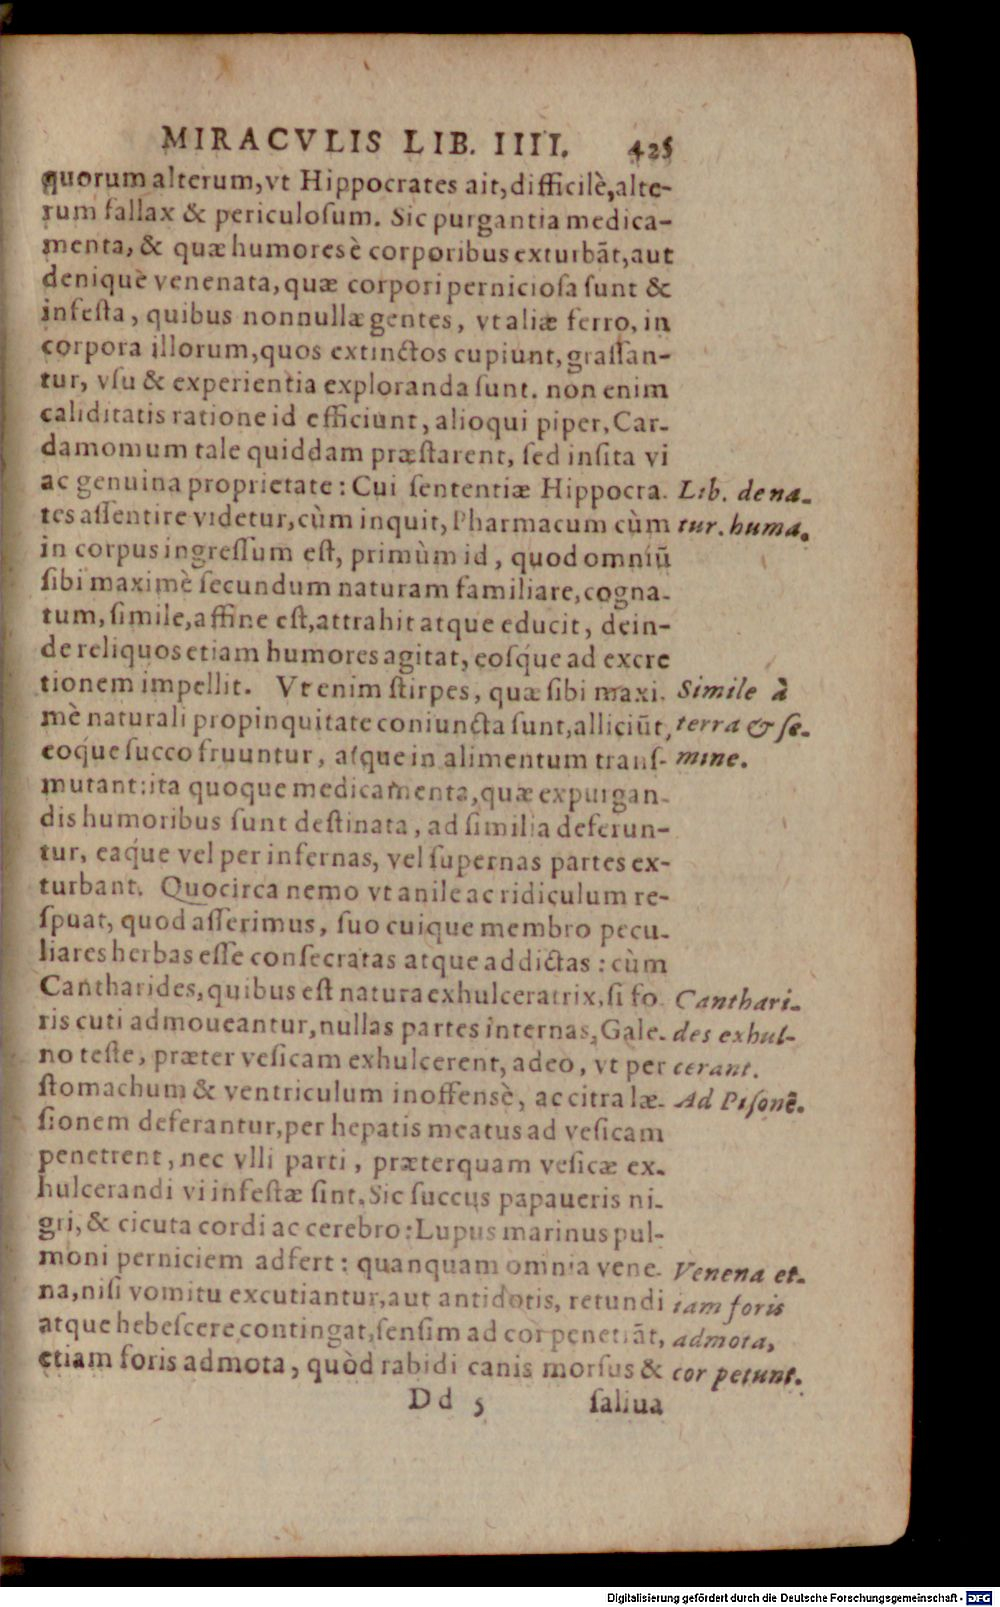 MIRACVLIS LIB. IIII. 425
quorum alterum, vt Hippocrates ait, difficilè, alte-
rum fallax & periculosum. Sic purgantia medica-
menta, & quæ humores è corporibus exturbāt, aut
denique venenata, quæ corpori perniciosa sunt &
infesta, quibus nonnullæ gentes, vt aliæ ferro, in
corpora illorum, quos extinctos cupiunt, grassan-
tur, vsu & experientia exploranda sunt. non enim
caliditatis ratione id efficiunt, alioqui piper, Car-
damomum tale quiddam præstarent, sed insita vi
ac genuina proprietate: Cui sententiæ Hippocra- Lib. de na-
tes assentire videtur, cùm inquit, Pharmacum cùm tur. huma.
in corpus ingressum est, primùm id, quod omniū
sibi maximè secundum naturam familiare, cogna-
tum, simile, affine est, attrahit atque educit, dein-
de reliquos etiam humores agitat, eosq́ue ad excre
tionem impellit. Vt enim stirpes, quæ sibi maxi- Simile à
mè naturali propinquitate coniuncta sunt, alliciūt, terra & se-
eoque succo fruuntur, atque in alimentum trans- mine.
mutant: ita quoque medicamenta, quæ expurgan-
dis humoribus sunt destinata, ad similia deferun-
tur, eaq́ue vel per infernas, vel supernas partes ex-
turbant. Quocirca nemo vt anile ac ridiculum re-
spuat, quod asserimus, suo cuique membro pecu-
liares herbas esse consecratas atque addictas: cùm
Cantharides, quibus est natura exhulceratrix, si fo Canthari-
ris cuti admoueantur, nullas partes internas, Gale- des exhul-
no teste, præter vesicam exhulcerent, adeo, vt per cerant.
stomachum & ventriculum inoffensè, ac citra læ- Ad Pisonē.
sionem deferantur, per hepatis meatus ad vesicam
penetrent, nec vlli parti, præterquam vesicæ ex-
hulcerandi vi infestæ sint. Sic succus papaueris ni-
gri, & cicuta cordi ac cerebro: Lupus marinus pul-
moni perniciem adfert: quanquam omnia vene- Venena et-
na, nisi vomitu excutiantur, aut antidotis, retundi iam foris
atque hebescere contingat, sensim ad cor penetrāt, admota,
etiam foris admota, quòd rabidi canis morsus & cor petunt.
Dd 5 saliua
Digitalisierung gefördert durch die Deutsche Forschungsgemeinschaft - DFG